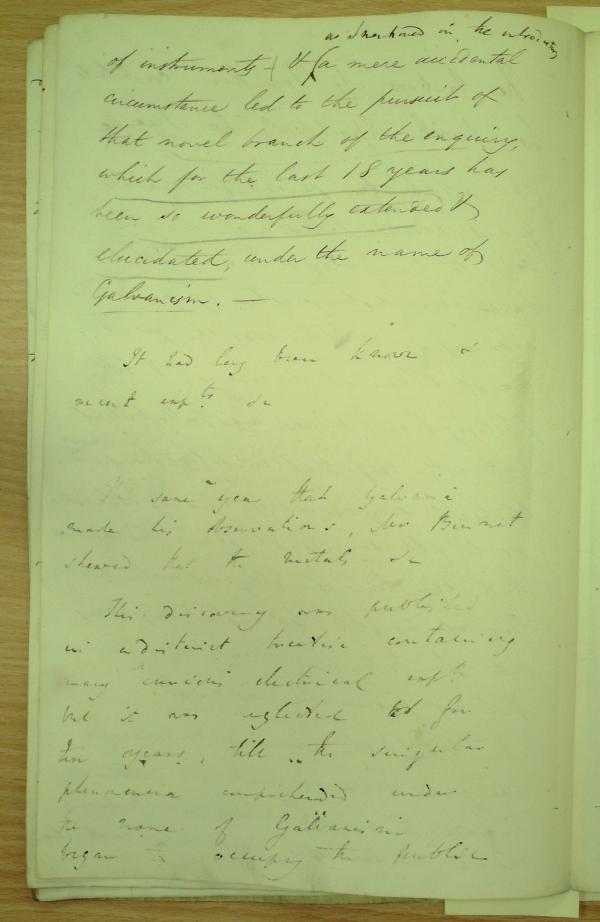 as mentioned in the introductory
of instruments & (a mere accidental
circumstance led to the pursuit of
that novel branch of the enquiry,
which for the last 18 years has
been so wonderfully extended &
elucidated, under the name of
Galvanism. —
It had long been known &
recent expts. &c
same year that Galvani
made his observations, Mr Bennet
shewed that the metals &c
This discovery was published
in a distinct treatise containing
many curious electrical expts
but it was neglected for
ten years, till the singular
phenomena comprehended under
the name of Galvanism
began to occupy the public